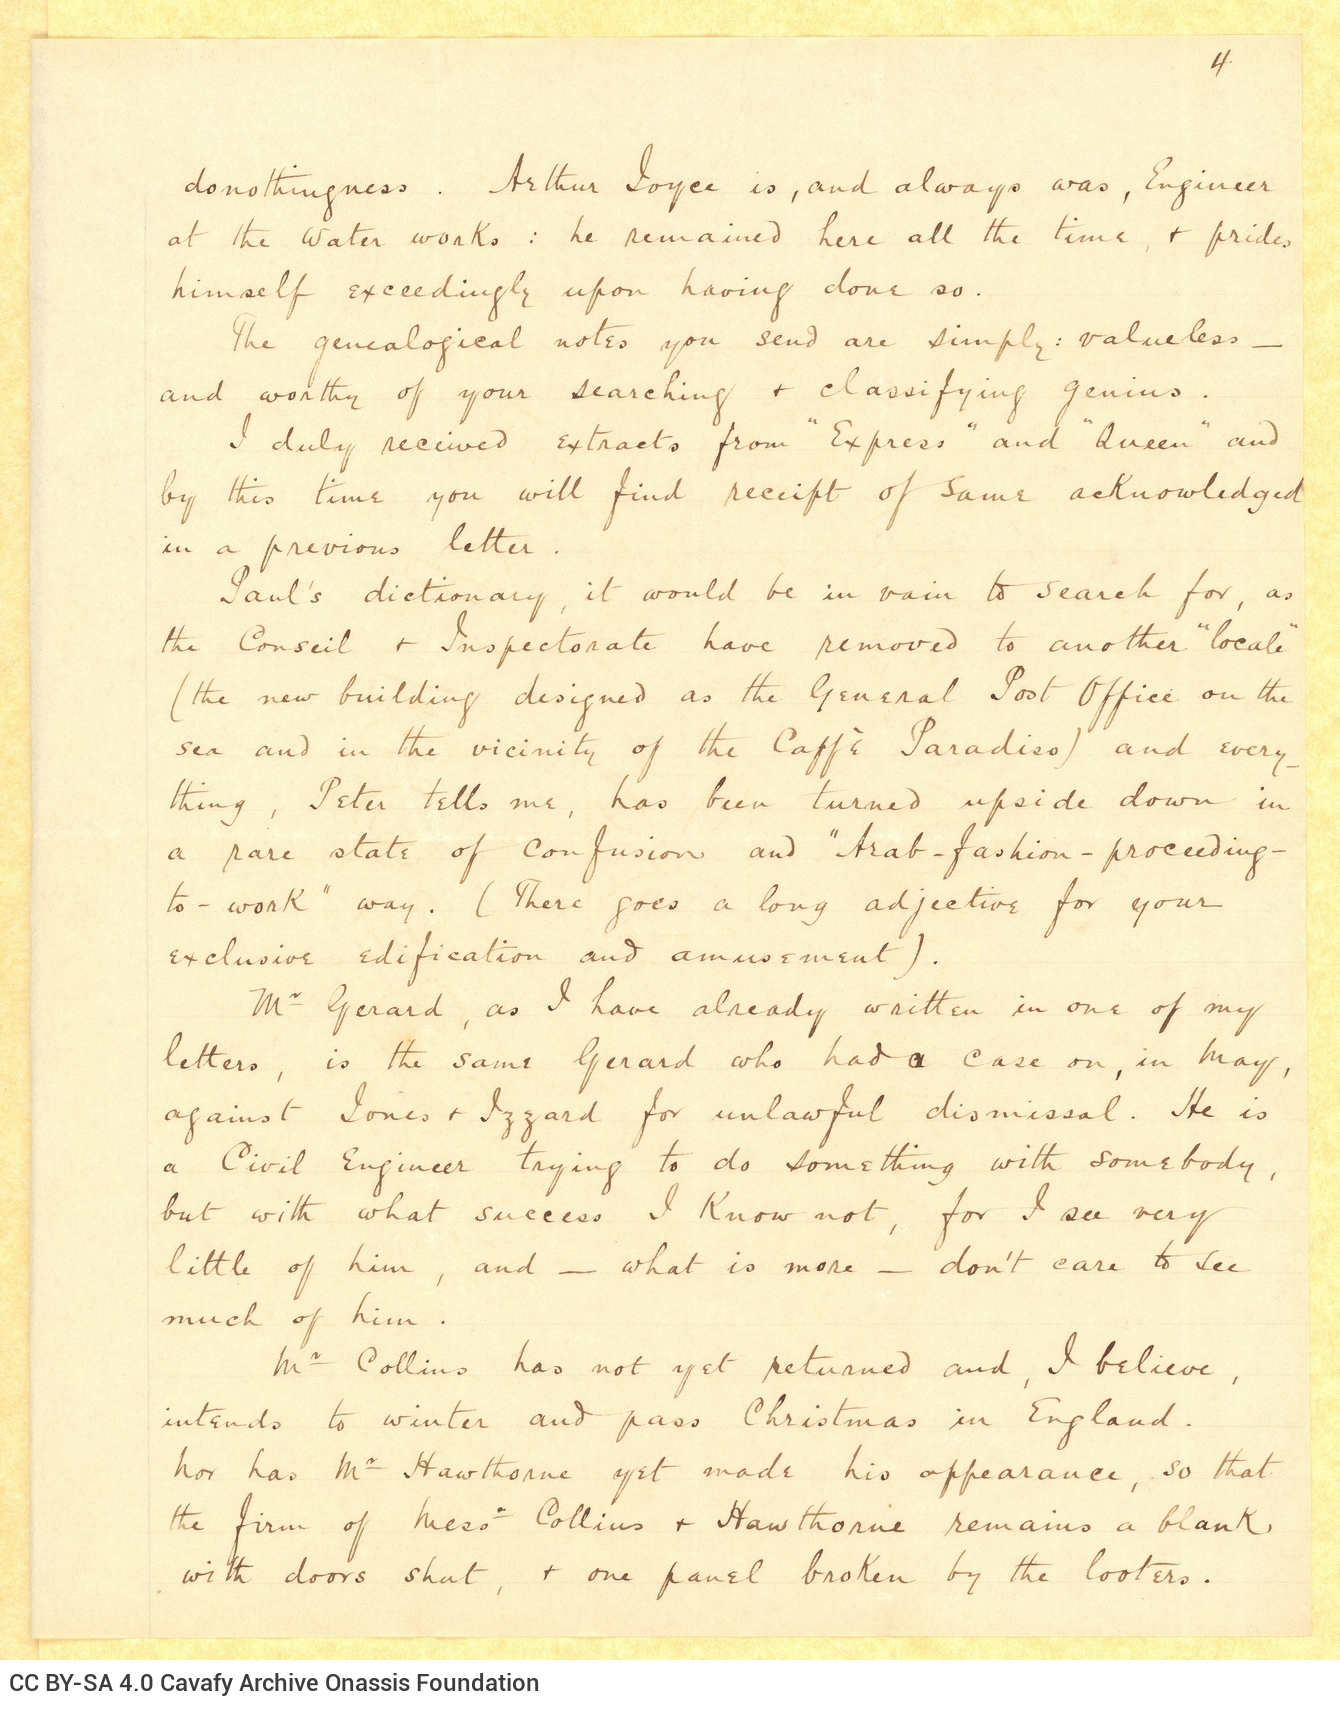 4
donothingness. Arthur Joyce is, and always was, Engineer
at the Water works : he remained here all the time, + prides
himself exceedingly upon having done so.
The genealogical notes you send are simply: valueless —
and worthy of your searching + classifying genius.
I duly received extracts from "Express" and "Queen" and
by this time you will find receipt of same acknowledged
in a previous letter.
Paul's dictionary, it would be in vain to search for, as
the Conseil + Inspectorate have removed to another "locale"
(the new building designed as the General Post Office on the
sea and in the vicinity of the Caffè Paradiso) and every-
thing, Peter tells me, has been turned upside down in
a rare state of confusion and "Arab-fashion-proceeding-
to-work" way. (There goes a long adjective for your
exclusive edification and amusement).
Mr Gerard, as I have already written in one of my
letters, is the same Gerard who had a case on, in May,
against Jones + Izzard for unlawful dismissal. He is
a Civil Engineer trying to do something with somebody,
but with what success I know not, for I see very
little of him, and — what is more — don't care to see
much of him.
Mr Collins has not yet returned and, I believe,
intends to winter and pass Christmas in England.
Nor has Mr Hawthorne yet made his appearance, so that
the firm of Messrs Collins + Hawthorne remains a blank,
with doors shut, + one panel broken by the looters.
CC BY-SA 4.0 Cavafy Archive Onassis Foundation